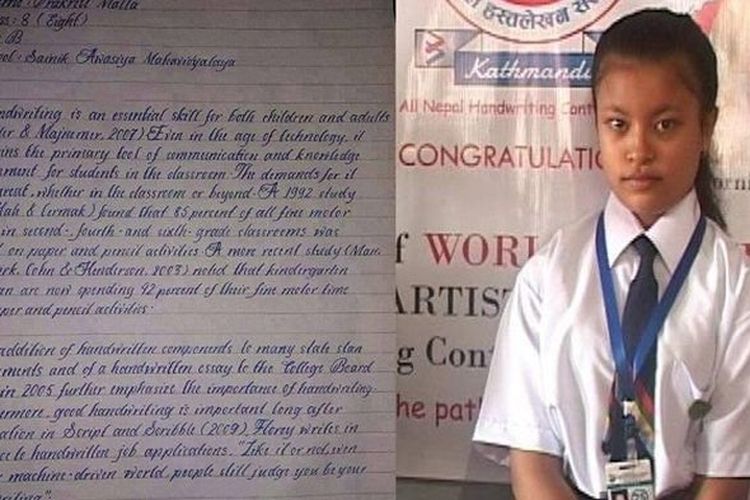 : Prakriti Malla
: 8 (Eight)
: B
: Sainik Awasiya Mahavidyalaya
ndwriting is an essential skill for both children and adults
& Majnemer, 2007) Even in the age of technology, it
ins the primary tool of communication and knowledge
ment for students in the classroom. The demands for it
whether in the classroom or beyond. A 1992 study
& Cermak) found that 85 percent of all fine motor
in second-, fourth- and sixth-grade classrooms was
on paper and pencil activities. A more recent study (Marr,
Cohn & Henderson, 2003) noted that kindergarten
are now spending 42 percent of their fine motor time
per and pencil activities.
addition of handwritten components to many state
ments and of a handwritten essay to the College Board
in 2005 further emphasize the importance of handwriting
ermore, good handwriting is important long after
ation in Script and Scribble (2009), Florey writes in
to handwritten job applications, "Like it or not, even
machine-driven world, people still judge you by your
हस्तलेखन
Kathmandu
All Nepal Handwriting Cont
CONGRATULATIO
f WOR
ARTIS
g Con
he pat